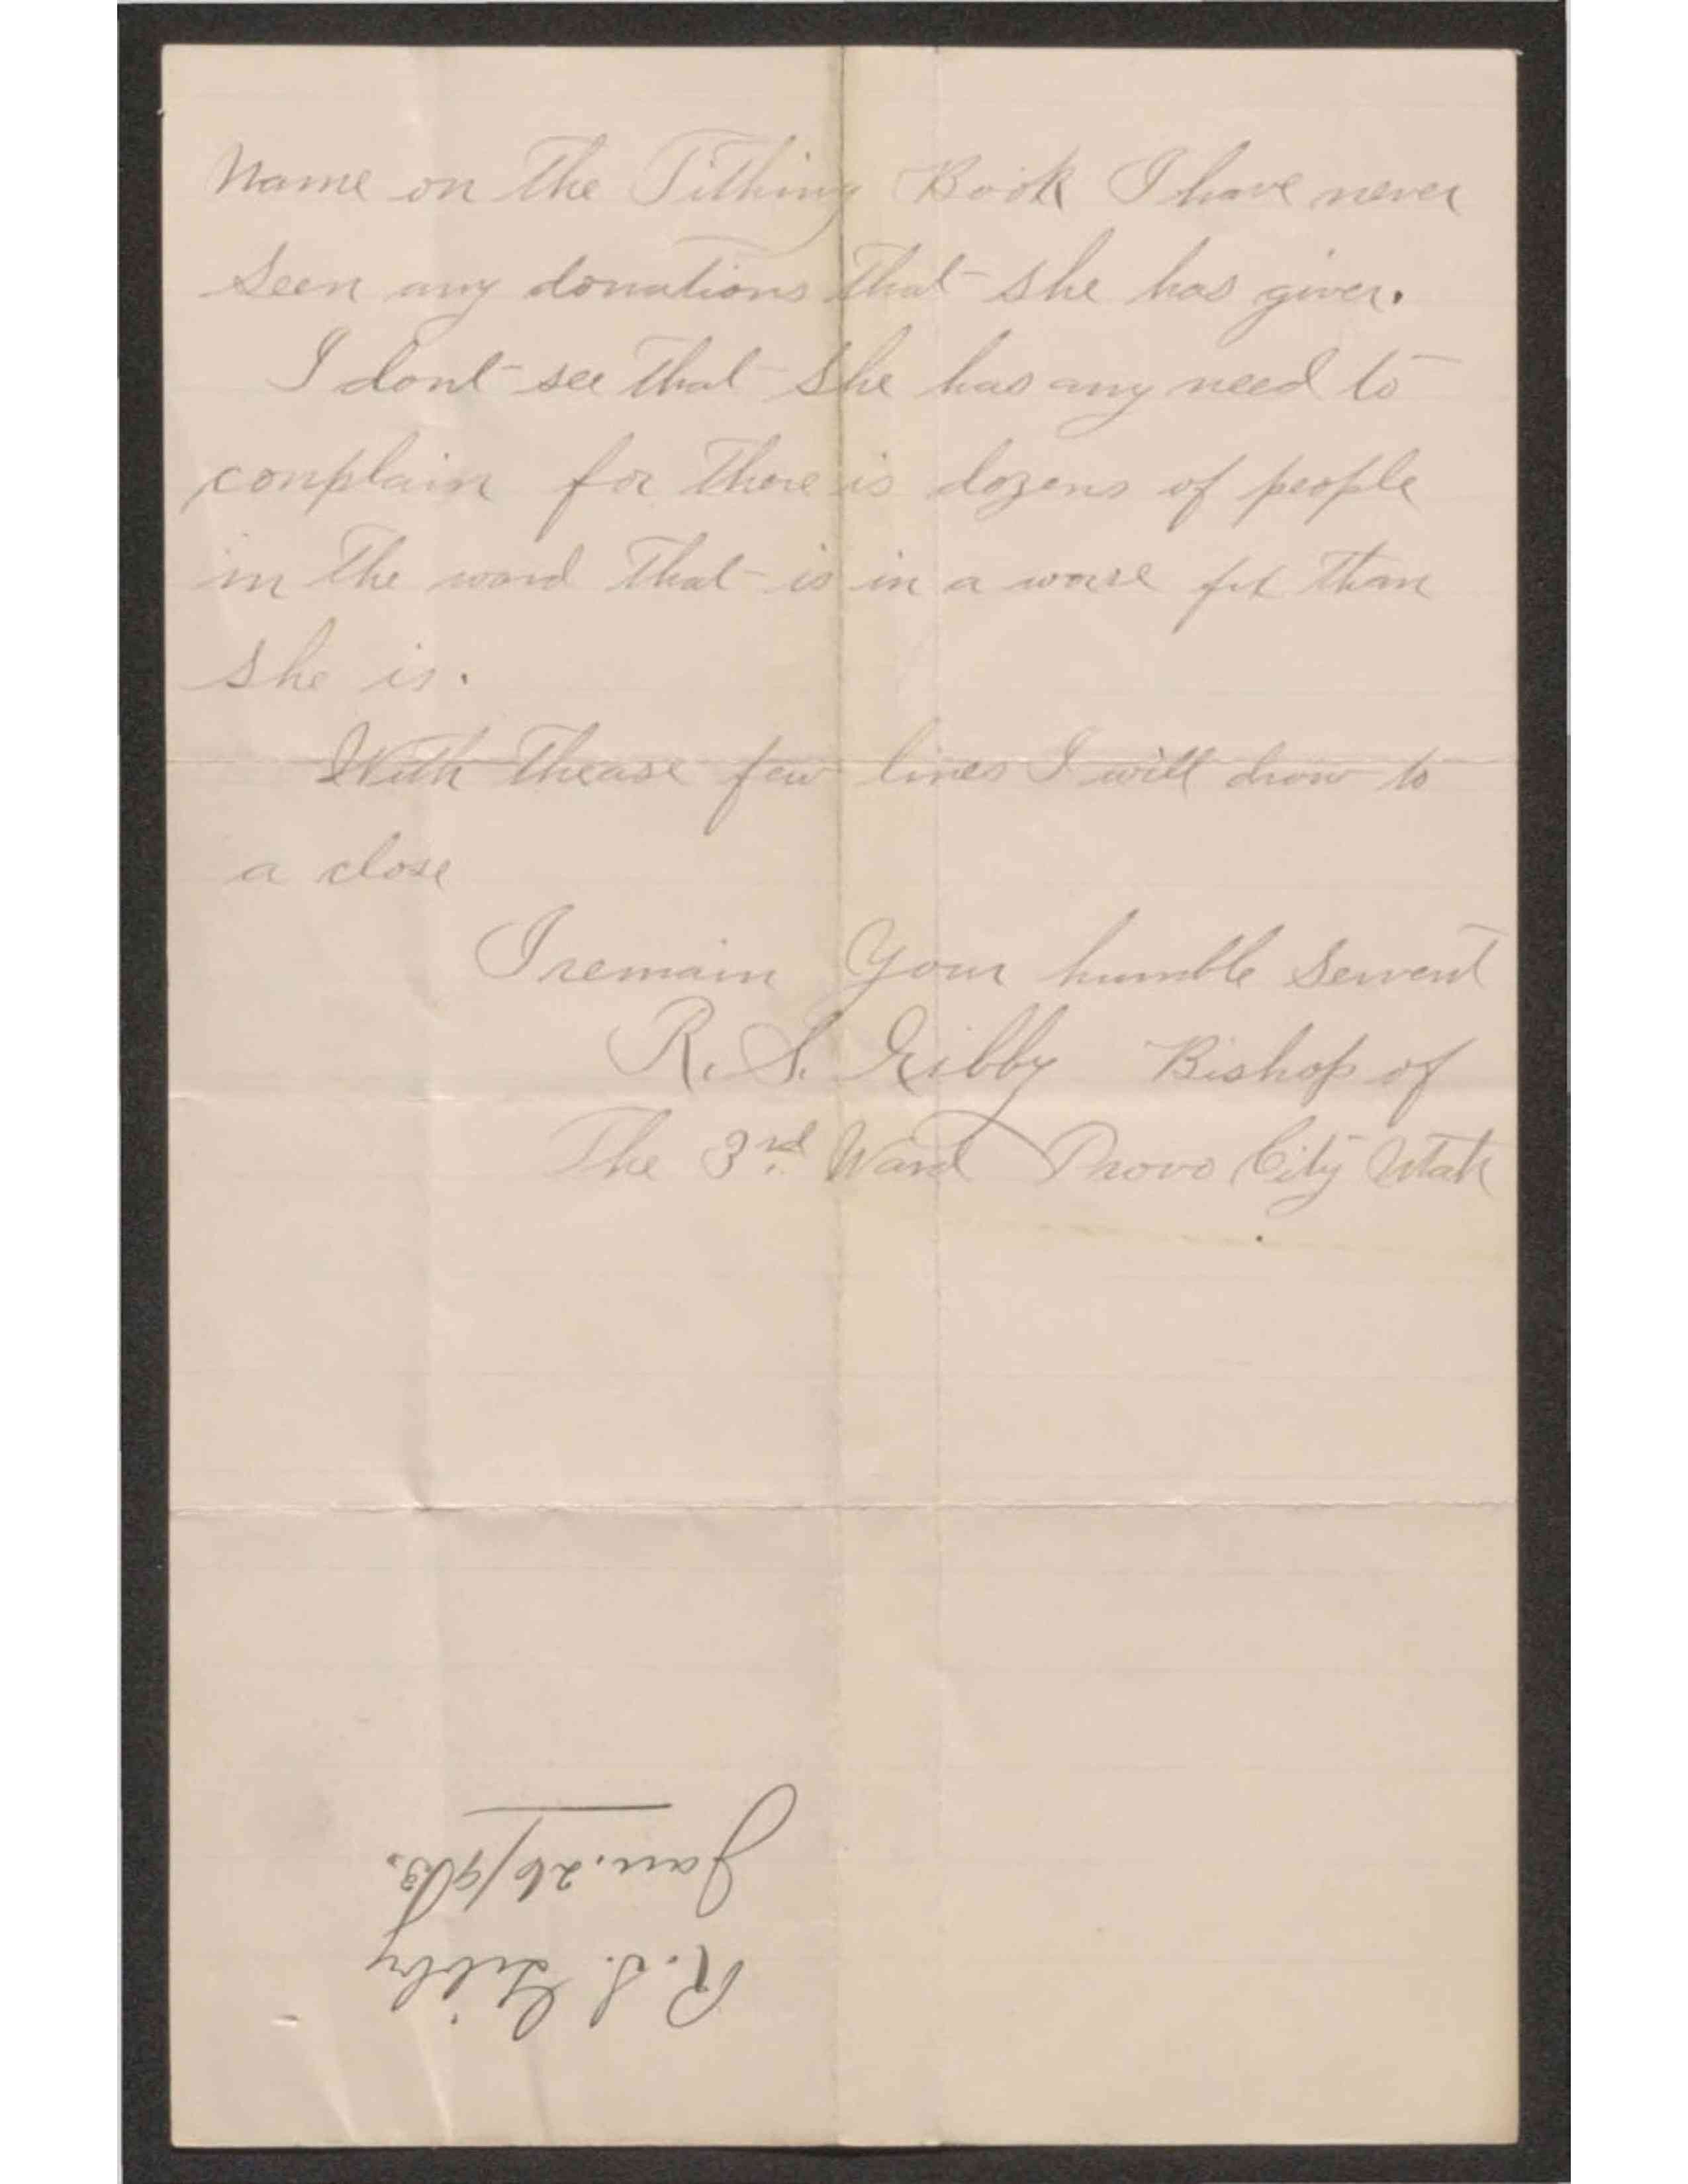 Name on the Tithing Book I have never
seen any donations that she has given.
I dont see that she has any need to
conplain for there is dozens of people
in the ward that is in a worse fix than
she is.
With thease few lines I will draw to
a close
I remain Your humble Servent
R. S. Gibby Bishop of
The 3rd Ward Provo City Utah
R. S. Gibby
Jan. 26/93.